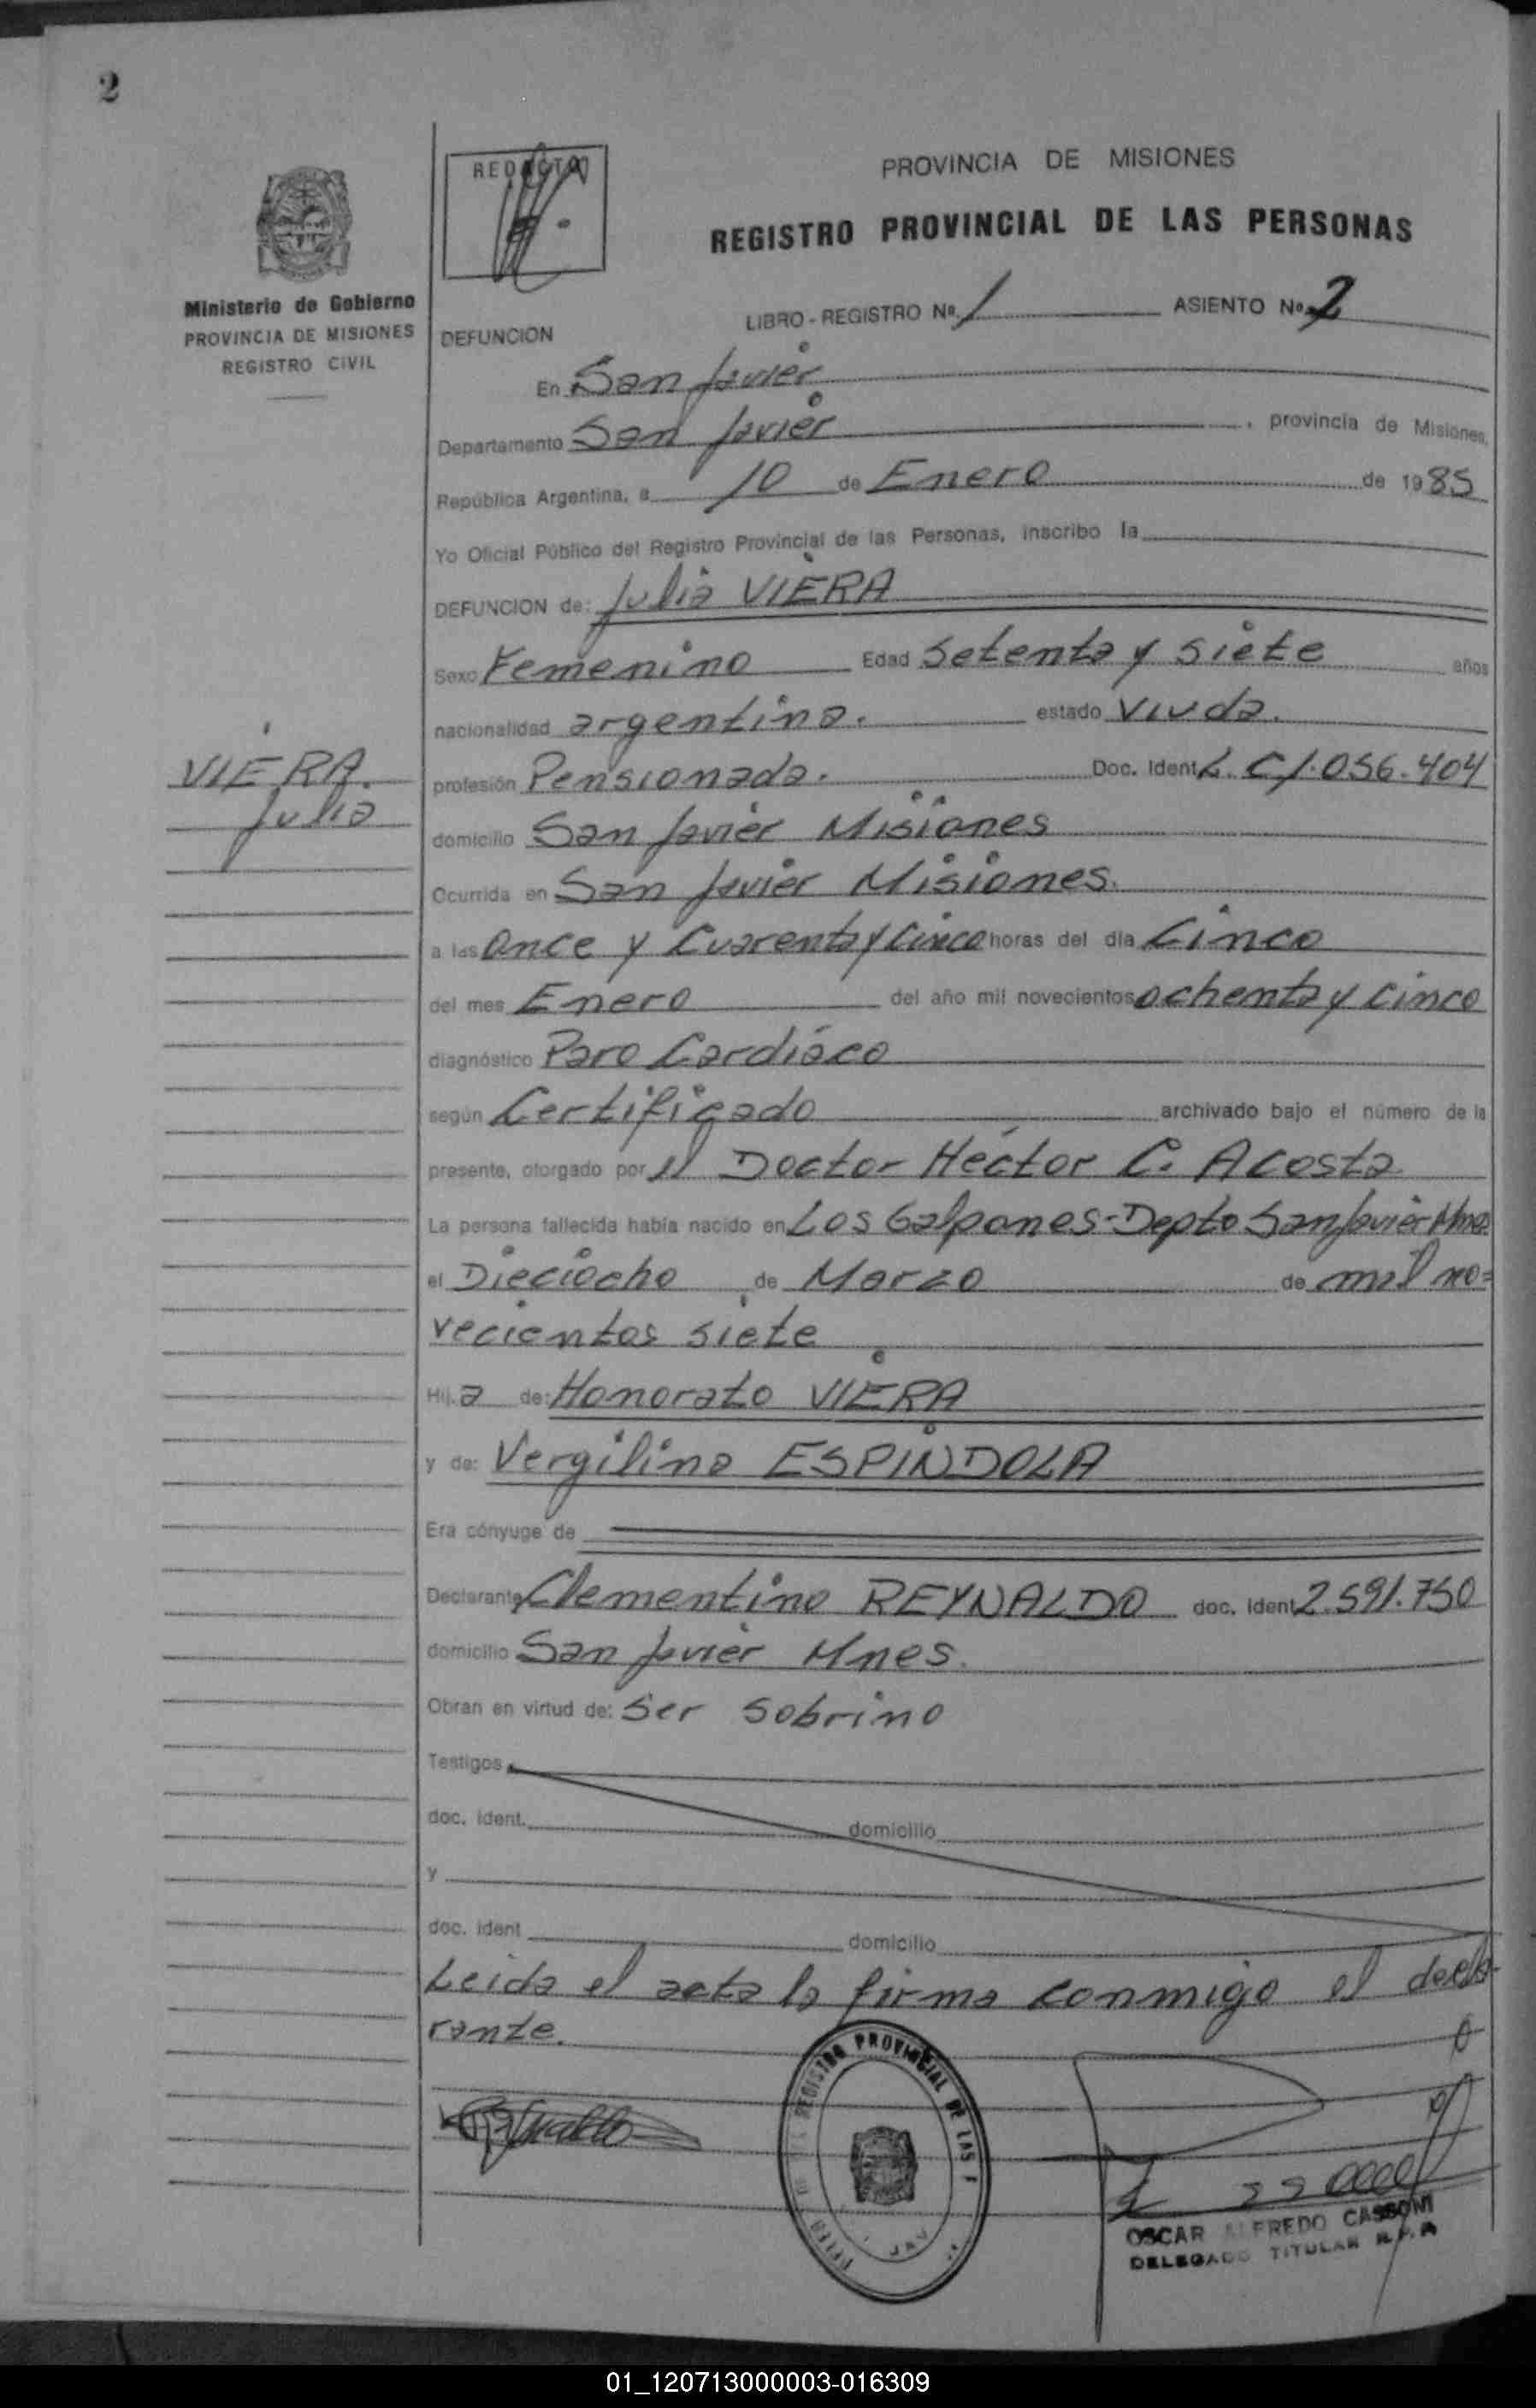 2
REDACTOR
PROVINCIA DE MISIONES
REGISTRO PROVINCIAL DE LAS PERSONAS
Ministerio de Gobierno
PROVINCIA DE MISIONES
REGISTRO CIVIL
LIBRO - REGISTRO Nº. 1 ASIENTO Nº 2
DEFUNCION
En San Javier
Departamento San Javier, provincia de Misiones,
República Argentina, a 10 de Enero de 1985
Yo Oficial Público del Registro Provincial de las Personas, inscribo la
DEFUNCION de: Julia VIERA
Sexo Femenino Edad Setenta y siete años
nacionalidad argentina. estado Viuda.
VIERA.
Julia
profesión Pensionada. Doc. Ident L. C 1.056.404
domicilio San Javier Misiones
Ocurrida en San Javier Misiones.
a las once y Cuarenta y Cinco horas del día Cinco
del mes Enero del año mil novecientos ochenta y Cinco
diagnóstico Paro Cardíaco
según Certificado archivado bajo el número de la
presente, otorgado por el Doctor Héctor C. Acosta
La persona fallecida había nacido en Los Galpones-Depto San Javier Mnes
el Dieciocho de Marzo de mil no=
vecientos siete
Hij.a de: Honorato VIERA
y de: Vergilina ESPINDOLA
Era cónyuge de
Declarante Clementino REYNALDO doc. Ident 2.591.750
domicilio San Javier Mnes.
Obran en virtud de: Ser sobrino
Testigos
doc. ident. domicilio
y
doc. ident domicilio
Leida el acta la firma conmigo el decla-
rante.
REGISTRO PROVINCIAL DE LAS P
OSCAR ALFREDO CASSONI
DELEGADO TITULAR R.P.P
01_120713000003-016309